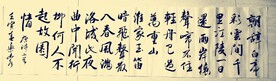 朝辞白帝
彩雲间千
里江陵一日
還两岸猿
聲啼不住
轻舟已过
萬重山
谁家玉笛
暗飞聲散
入春風满
洛城此夜
曲中闻折
柳何人不
起故园
情